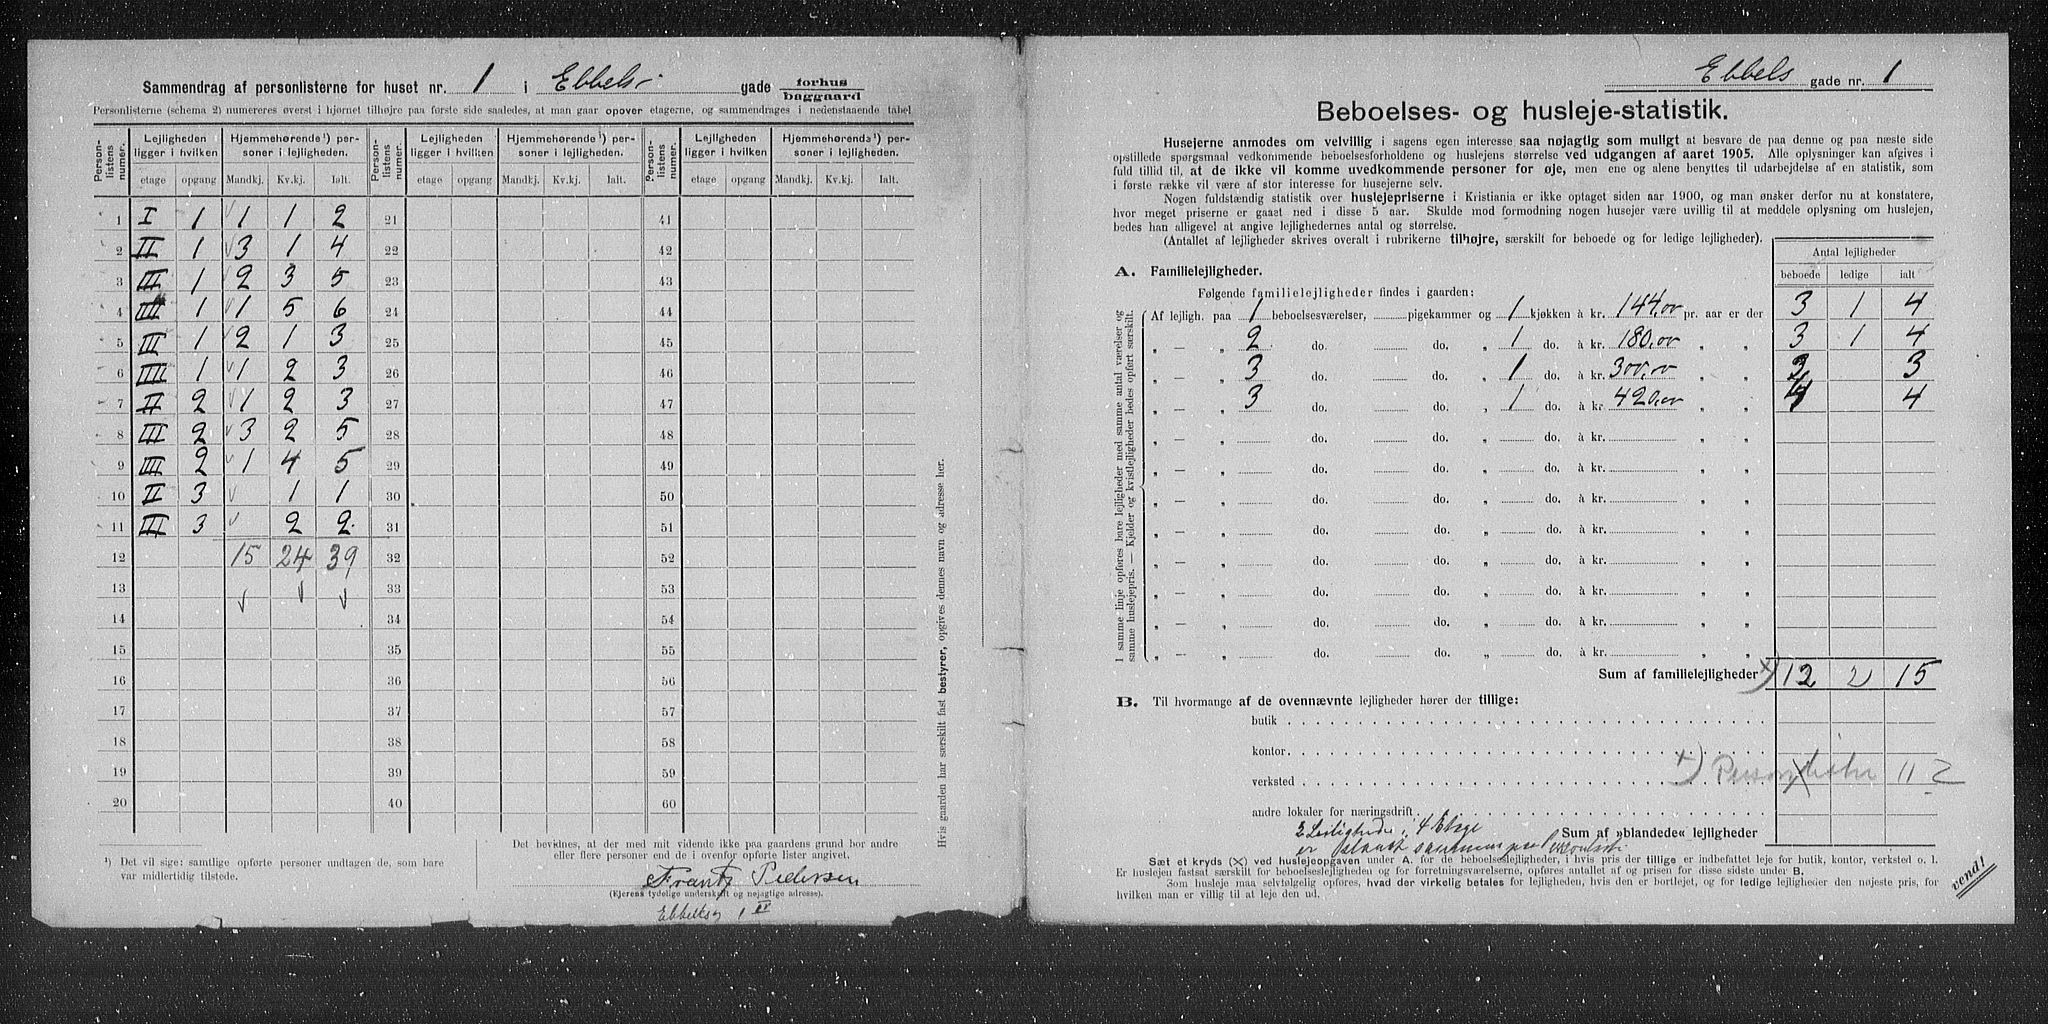 Sammendrag af personlisterne for huset nr. 1 i Ebbels gade forhus
baggaard
Personlisterne (schema 2) numereres øverst i hjørnet tilhøjre paa første side saaledes, at man gaar opover etagerne, og sammendrages i nedenstaaende tabel.
Person-listens numer. Lejligheden ligger i hvilken Hjemmehørende¹) personer i lejligheden. Person-listens numer. Lejligheden ligger i hvilken Hjemmehørende¹) personer i lejligheden. Person-listens numer. Lejligheden ligger i hvilken Hjemmehørende¹) personer i lejligheden.
etage opgang Mandkj. Kv.kj. Ialt. etage opgang Mandkj. Kv.kj. Ialt. etage opgang Mandkj. Kv.kj. Ialt.
1 I 1 1 1 2 21 41
2 II 1 3 1 4 22 42
3 III 1 2 3 5 23 43
4 IIII 1 1 5 6 24 44
5 III 1 2 1 3 25 45
6 IIII 1 1 2 3 26 46
7 II 2 1 2 3 27 47
8 III 2 3 2 5 28 48
9 IIII 2 1 4 5 29 49
10 II 3 1 1 30 50
11 III 3 2 2 31 51
12 15 24 39 32 52
13 33 53
14 34 54
15 35 55
16 36 56
17 37 57
18 38 58
19 39 59
20 40 60
¹) Det vil sige: samtlige opførte personer undtagen de, som bare
var midlertidig tilstede.
Det bevidnes, at der med mit vidende ikke paa gaardens grund bor andre
eller flere personer end de i ovenfor opførte lister angivet.
Frantz Pedersen
(Ejerens tydelige underskrift og nøjagtige adresse).
Ebbelsg 1 IV
Hvis gaarden har særskilt fast bestyrer, opgives dennes navn og adresse her.
Ebbels gade nr. 1
Beboelses- og husleje-statistik.
Husejerne anmodes om velvillig i sagens egen interesse saa nøjagtig som muligt at besvare de paa denne og paa næste side
opstillede spørgsmaal vedkommende beboelsesforholdene og huslejens størrelse ved udgangen af aaret 1905. Alle oplysninger kan afgives i
fuld tillid til, at de ikke vil komme uvedkommende personer for øje, men ene og alene benyttes til udarbejdelse af en statistik, som
i første række vil være af stor interesse for husejerne selv.
Nogen fuldstændig statistik over huslejepriserne i Kristiania er ikke optaget siden aar 1900, og man ønsker derfor nu at konstatere,
hvor meget priserne er gaaet ned i disse 5 aar. Skulde mod formodning nogen husejer være uvillig til at meddele oplysning om huslejen,
bedes han alligevel at angive lejlighedernes antal og størrelse.
(Antallet af lejligheder skrives overalt i rubrikerne tilhøjre, særskilt for beboede og for ledige lejligheder).
Antal lejligheder
beboede ledige ialt
A. Familielejligheder.
Følgende familielejligheder findes i gaarden:
I samme linje opføres bare lejligheder med samme antal værelser og
samme huslejepris. — Kjelder og kvistlejligheder bedes opført særskilt.
Af lejligh. paa 1 beboelsesværelser, pigekammer og 1 kjøkken à kr. 144,00 pr. aar er der 3 1 4
„ — „ 2 do. do. „ 1 do. à kr. 180,00 „ „ 3 1 4
„ — „ 3 do. do. „ 1 do. à kr. 300,00 „ „ 3 3
„ — „ 3 do. do. „ 1 do. à kr. 420,00 „ „ 4 4
„ — „ do. do. „ do. à kr. „ „
„ — „ do. do. „ do. à kr. „ „
„ — „ do. do. „ do. à kr. „ „
„ — „ do. do. „ do. à kr. „ „
„ — „ do. do. „ do. à kr. „ „
„ — „ do. do. „ do. à kr. „ „
„ — „ do. do. „ do. à kr. „ „
„ — „ do. do. „ do. à kr. „ „
Sum af familielejligheder x) 12 2 15
B. Til hvormange af de ovennævnte lejligheder hører der tillige:
butik
kontor
verksted x) Personlister 11 2
andre lokaler for næringsdrift
2 Leiligheder i 4 Etage
er slaaet sammen paa
Sum af »blandede« lejligheder
Sæt et kryds (×) ved huslejeopgaven under A. for de beboelseslejligheder, i hvis pris der tillige er indbefattet leje for butik, kontor, verksted o. l.
Er huslejen fastsat særskilt for beboelseslejligheden og for forretningsværelserne, opføres antallet af og prisen for disse sidste under B.
Som husleje maa selvfølgelig opføres, hvad der virkelig betales for lejligheden, hvis den er bortlejet, og for ledige lejligheder den nøjeste pris, for
hvilken man er villig til at leje den ud.
vend!